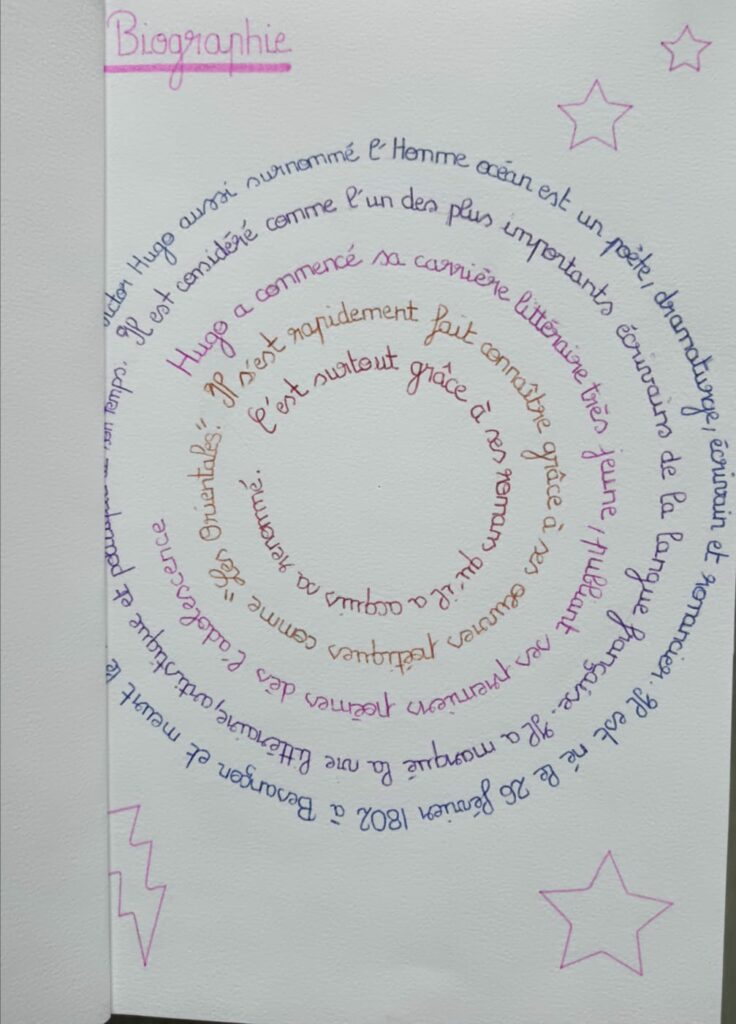 Biographie
Victor Hugo aussi surnommé l'Homme océan est un poète, dramaturge, écrivain et romancier. Il est né le 26 février 1802 à Besançon et meurt le
Il est considéré comme l'un des plus importants écrivains de la langue française. Il a marqué la vie littéraire, artistique et
Hugo a commencé sa carrière littéraire très jeune, publiant ses premiers poèmes dès l'adolescence
Il s'est rapidement fait connaître grâce à ses œuvres poétiques comme "Les Orientales".
C'est surtout grâce à ses romans qu'il a acquis sa renommé.